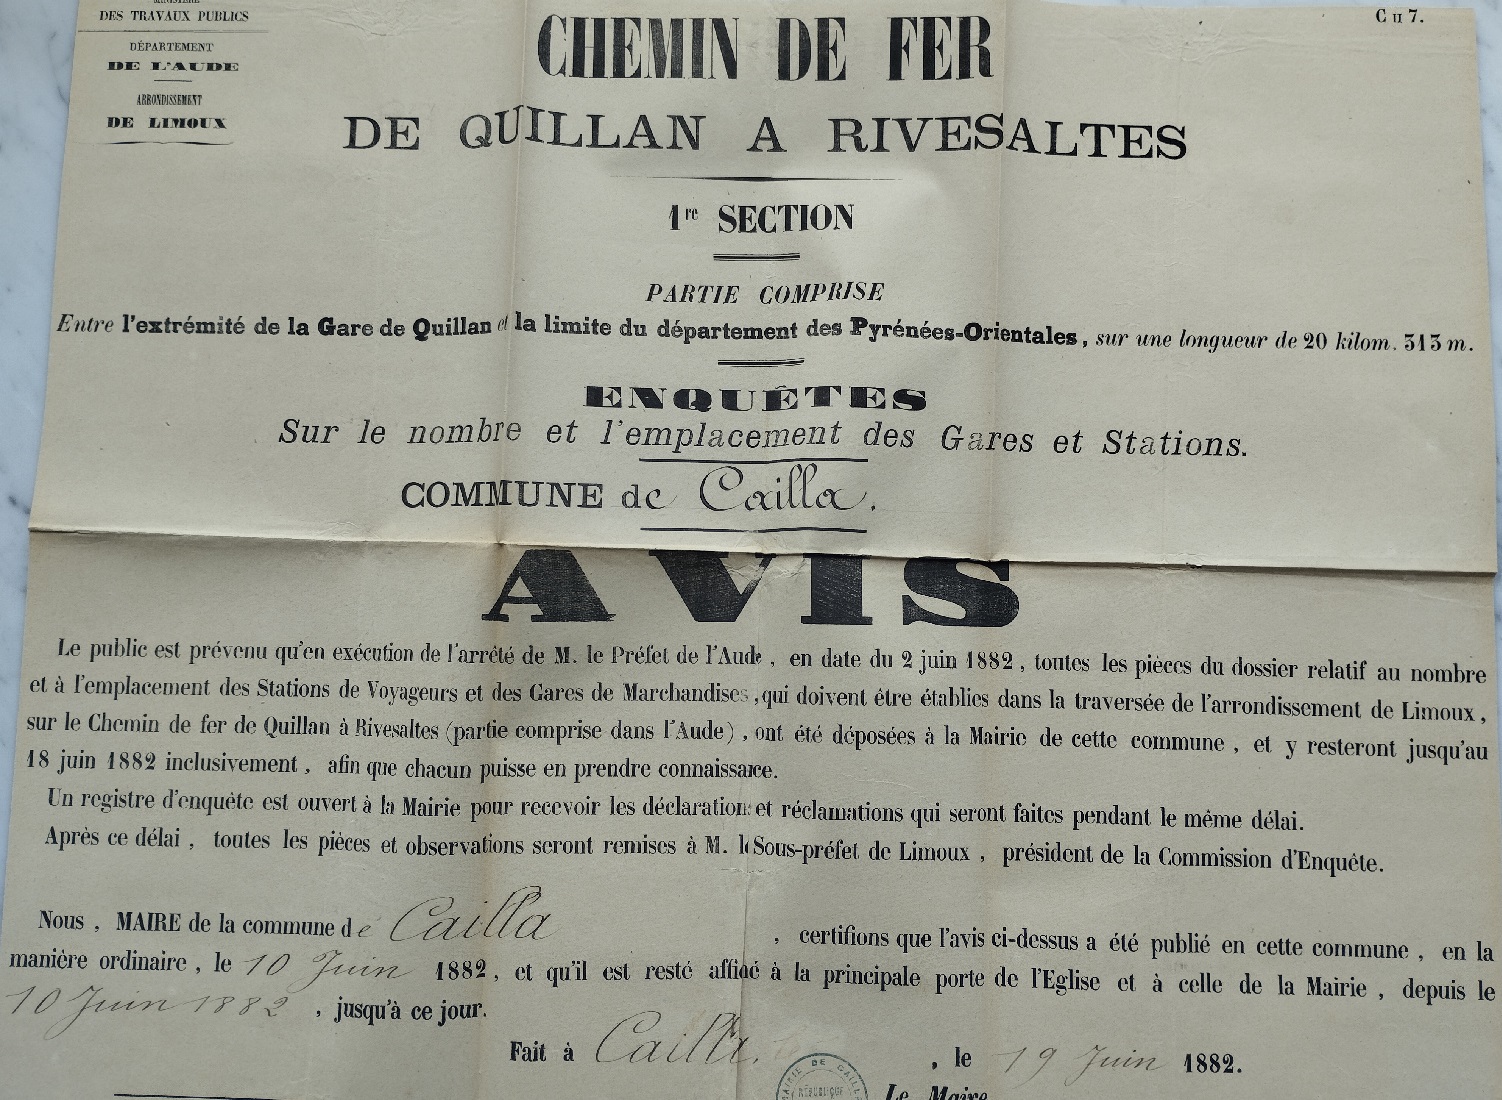 MINISTÈRE
DES TRAVAUX PUBLICS
DÉPARTEMENT
DE L'AUDE
ARRONDISSEMENT
DE LIMOUX
C II 7.
CHEMIN DE FER
DE QUILLAN A RIVESALTES
1re SECTION
PARTIE COMPRISE
Entre l'extrémité de la Gare de Quillan et la limite du département des Pyrénées-Orientales, sur une longueur de 20 kilom. 313 m.
ENQUÊTES
Sur le nombre et l'emplacement des Gares et Stations.
COMMUNE de Cailla.
AVIS
Le public est prévenu qu'en exécution de l'arrêté de M. le Préfet de l'Aude, en date du 2 juin 1882, toutes les pièces du dossier relatif au nombre
et à l'emplacement des Stations de Voyageurs et des Gares de Marchandises, qui doivent être établies dans la traversée de l'arrondissement de Limoux,
sur le Chemin de fer de Quillan à Rivesaltes (partie comprise dans l'Aude), ont été déposées à la Mairie de cette commune, et y resteront jusqu'au
18 juin 1882 inclusivement, afin que chacun puisse en prendre connaissance.
Un registre d'enquête est ouvert à la Mairie pour recevoir les déclarations et réclamations qui seront faites pendant le même délai.
Après ce délai, toutes les pièces et observations seront remises à M. le Sous-préfet de Limoux, président de la Commission d'Enquête.
Nous, MAIRE de la commune de Cailla, certifions que l'avis ci-dessus a été publié en cette commune, en la
manière ordinaire, le 10 Juin 1882, et qu'il est resté affiché à la principale porte de l'Eglise et à celle de la Mairie, depuis le
10 Juin 1882, jusqu'à ce jour.
Fait à Cailla, le 19 Juin 1882.
MAIRIE DE CAILLA
RÉPUBLIQUE
Le Maire